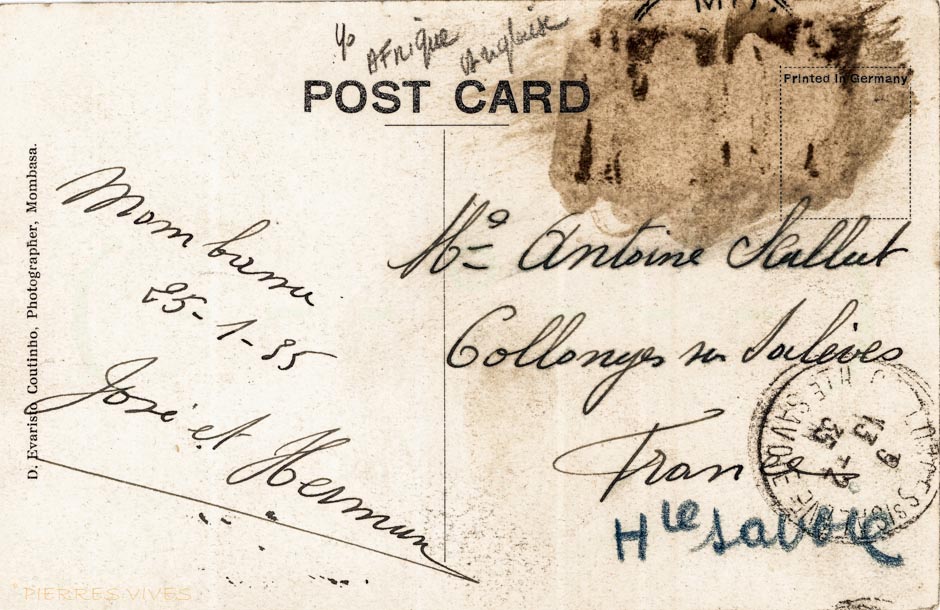 Afrique Anglaise
POST CARD
Printed In Germany
D. Evaristo Coutinho, Photographer, Mombasa.
Mombassa
25-1-35
José et Herman
Antoine
Collonges sur Salèves
France
Hte Savoie
PIERRES VIVES